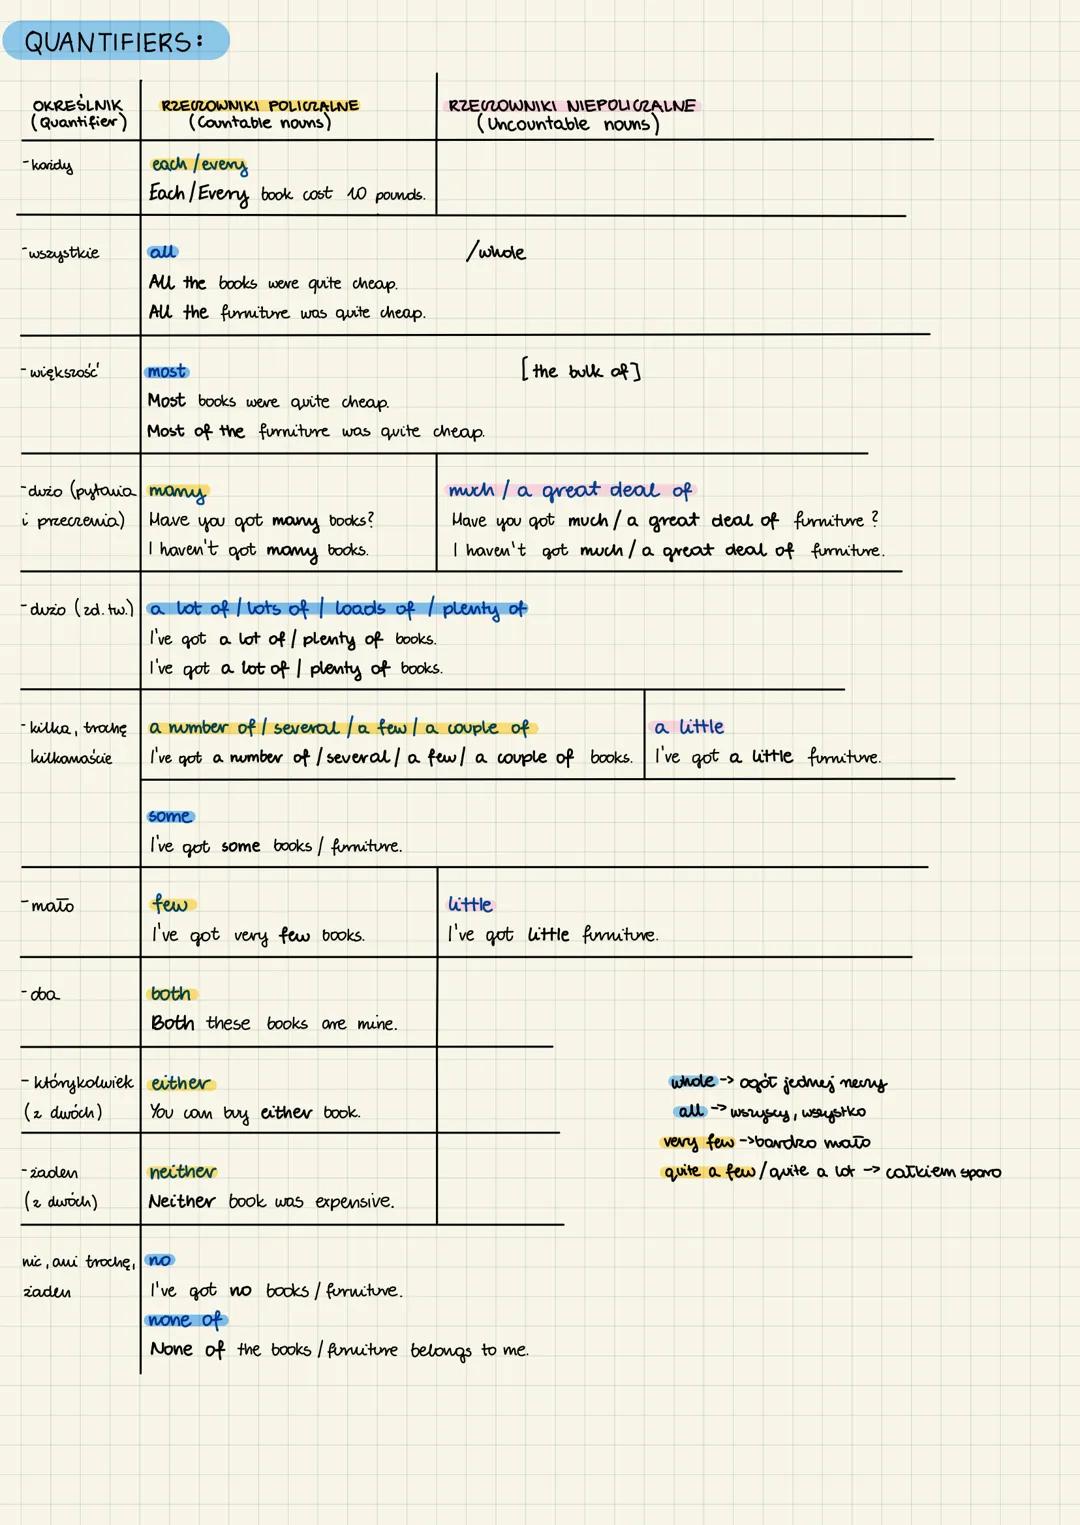 QUANTIFIERS:
OKREŚLNIK
(Quantifier)
RZECZOWNIKI POLICZALNE
(Countable nouns)
RZECZOWNIKI NIEPOLICZALNE
(Uncountable nouns)
- każdy
each / every
Each / Every book cost 10 pounds.
- wszystkie
all
/ whole
All the books were quite cheap.
All the furniture was quite cheap.
- większość
most
[the bulk of]
Most books were quite cheap.
Most of the furniture was quite cheap.
- dużo (pytania
i przeczenia)
many
Have you got many books?
I haven't got many books.
much / a great deal of
Have you got much / a great deal of furniture?
I haven't got much / a great deal of furniture.
- dużo (zd. tw.)
a lot of / lots of / loads of / plenty of
I've got a lot of / plenty of books.
I've got a lot of / plenty of books.
- kilka, trochę
kilkanaście
a number of / several / a few / a couple of
I've got a number of / several / a few / a couple of books.
a little
I've got a little furniture.
some
I've got some books / furniture.
- mało
few
I've got very few books.
little
I've got little furniture.
- oba
both
Both these books are mine.
- którykolwiek
(z dwóch)
either
You can buy either book.
- żaden
(z dwóch)
neither
Neither book was expensive.
nic, ani trochę,
żaden
no
I've got no books / furniture.
none of
None of the books / furniture belongs to me.
whole -> ogół jednej rzeczy
all -> wszyscy, wszystko
very few -> bardzo mało
quite a few / quite a lot -> całkiem sporo